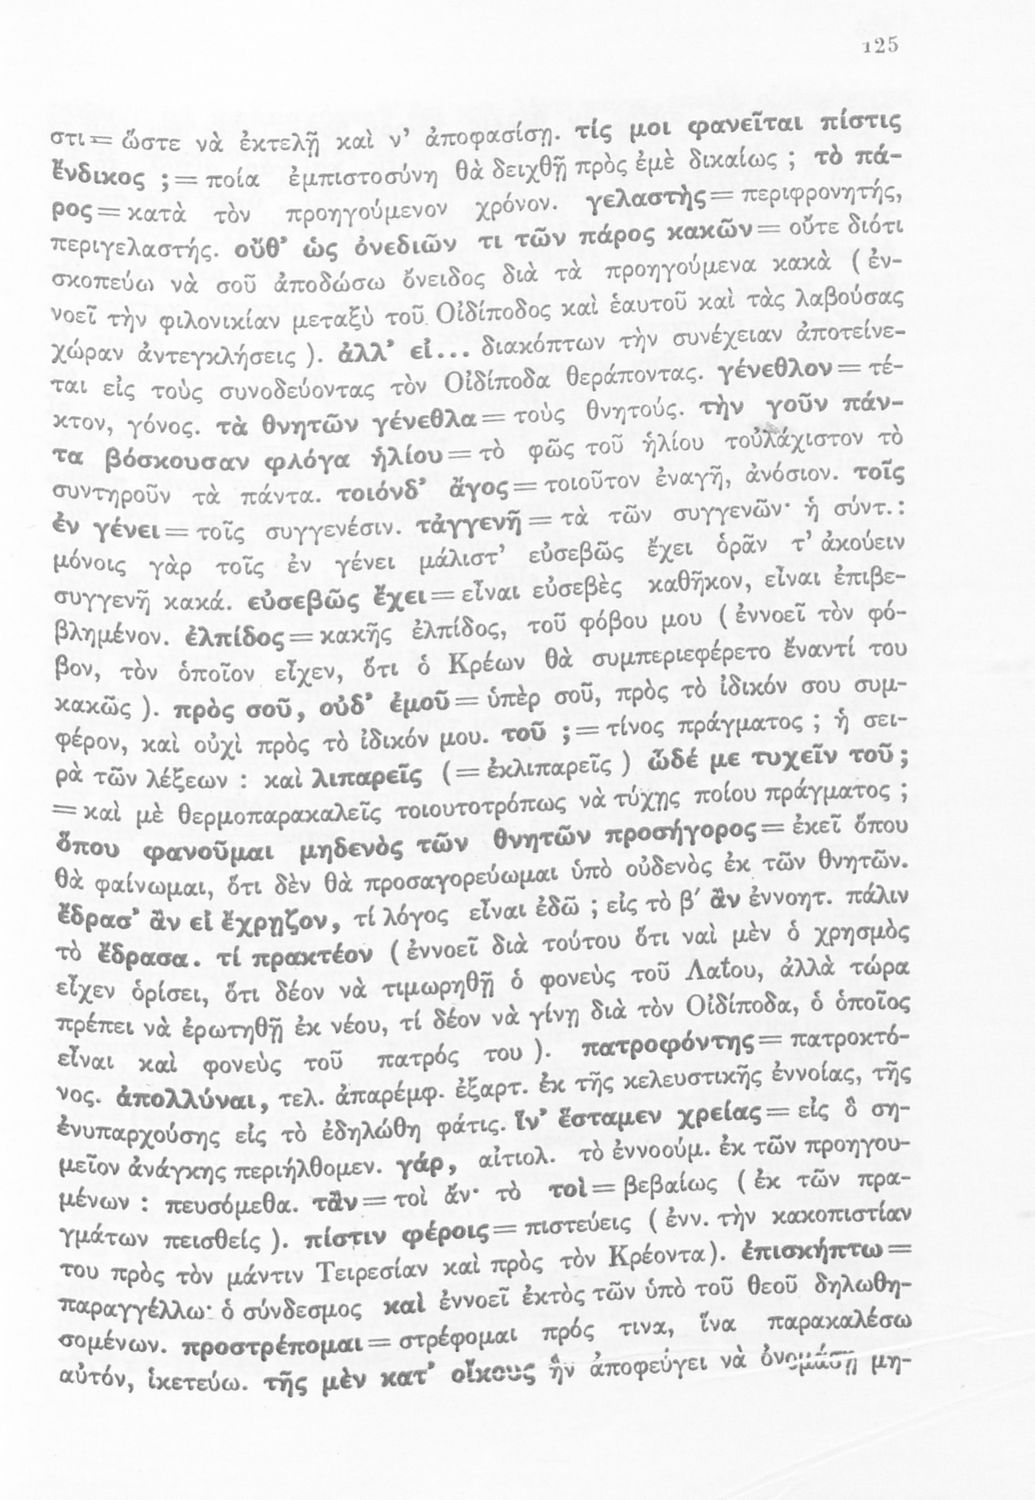 125
στι = ὥστε νὰ ἐκτελῇ καὶ ν’ ἀποφασίσῃ. τίς μοι φανεῖται πίστις
ἔνδικος ; = ποία ἐμπιστοσύνη θὰ δειχθῇ πρὸς ἐμὲ δικαίως ; τὸ πά-
ρος = κατὰ τὸν προηγούμενον χρόνον. γελαστὴς = περιφρονητής,
περιγελαστής. οὔθ’ ὡς ὀνεδιῶν τι τῶν πάρος κακῶν = οὔτε διότι
σκοπεύω νὰ σοῦ ἀποδώσω ὄνειδος διὰ τὰ προηγούμενα κακὰ ( ἐν-
νοεῖ τὴν φιλονικίαν μεταξὺ τοῦ Οἰδίποδος καὶ ἑαυτοῦ καὶ τὰς λαβούσας
χώραν ἀντεγκλήσεις ). ἀλλ’ εἰ... διακόπτων τὴν συνέχειαν ἀποτείνε-
ται εἰς τοὺς συνοδεύοντας τὸν Οἰδίποδα θεράποντας. γένεθλον = τέ-
κτον, γόνος. τὰ θνητῶν γένεθλα = τοὺς θνητούς. τὴν γοῦν πάν-
τα βόσκουσαν φλόγα ἡλίου = τὸ φῶς τοῦ ἡλίου τοὐλάχιστον τὸ
συντηροῦν τὰ πάντα. τοιόνδ’ ἄγος = τοιοῦτον ἐναγῆ, ἀνόσιον. τοῖς
ἐν γένει = τοῖς συγγενέσιν. τἀγγενῆ = τὰ τῶν συγγενῶν· ἡ σύντ.:
μόνοις γὰρ τοῖς ἐν γένει μάλιστ’ εὐσεβῶς ἔχει ὁρᾶν τ’ ἀκούειν
συγγενῆ κακά. εὐσεβῶς ἔχει = εἶναι εὐσεβὲς καθῆκον, εἶναι ἐπιβε-
βλημένον. ἐλπίδος = κακῆς ἐλπίδος, τοῦ φόβου μου ( ἐννοεῖ τὸν φό-
βον, τὸν ὁποῖον εἶχεν, ὅτι ὁ Κρέων θὰ συμπεριεφέρετο ἔναντί του
κακῶς ). πρὸς σοῦ, οὐδ’ ἐμοῦ = ὑπὲρ σοῦ, πρὸς τὸ ἰδικόν σου συμ-
φέρον, καὶ οὐχὶ πρὸς τὸ ἰδικόν μου. τοῦ ; = τίνος πράγματος ; ἡ σει-
ρὰ τῶν λέξεων : καὶ λιπαρεῖς ( = ἐκλιπαρεῖς ) ὧδέ με τυχεῖν τοῦ ;
= καὶ μὲ θερμοπαρακαλεῖς τοιουτοτρόπως νὰ τύχῃς ποίου πράγματος ;
ὅπου φανοῦμαι μηδενὸς τῶν θνητῶν προσήγορος = ἐκεῖ ὅπου
θὰ φαίνωμαι, ὅτι δὲν θὰ προσαγορεύωμαι ὑπὸ οὐδενὸς ἐκ τῶν θνητῶν.
ἔδρασ’ ἂν εἰ ἔχρῃζον, τί λόγος εἶναι ἐδῶ ; εἰς τὸ β′ ἂν ἐννοητ. πάλιν
τὸ ἔδρασα. τί πρακτέον ( ἐννοεῖ διὰ τούτου ὅτι ναὶ μὲν ὁ χρησμὸς
εἶχεν ὁρίσει, ὅτι δέον νὰ τιμωρηθῇ ὁ φονεὺς τοῦ Λαΐου, ἀλλὰ τώρα
πρέπει νὰ ἐρωτηθῇ ἐκ νέου, τί δέον νὰ γίνῃ διὰ τὸν Οἰδίποδα, ὁ ὁποῖος
εἶναι καὶ φονεὺς τοῦ πατρός του ). πατροφόντης = πατροκτό-
νος. ἀπολλύναι, τελ. ἀπαρέμφ. ἐξαρτ. ἐκ τῆς κελευστικῆς ἐννοίας, τῆς
ἐνυπαρχούσης εἰς τὸ ἐδηλώθη φάτις. ἵν’ ἕσταμεν χρείας = εἰς ὃ ση-
μεῖον ἀνάγκης περιήλθομεν. γάρ, αἰτιολ. τὸ ἐννοούμ. ἐκ τῶν προηγου-
μένων : πευσόμεθα. τἂν = τοὶ ἄν· τὸ τοὶ = βεβαίως ( ἐκ τῶν πρα-
γμάτων πεισθείς ). πίστιν φέροις = πιστεύεις ( ἐνν. τὴν κακοπιστίαν
του πρὸς τὸν μάντιν Τειρεσίαν καὶ πρὸς τὸν Κρέοντα). ἐπισκήπτω =
παραγγέλλω· ὁ σύνδεσμος καὶ ἐννοεῖ ἐκτὸς τῶν ὑπὸ τοῦ θεοῦ δηλωθη-
σομένων. προστρέπομαι = στρέφομαι πρός τινα, ἵνα παρακαλέσω
αὐτόν, ἱκετεύω. τῆς μὲν κατ’ οἴκους ἣν ἀποφεύγει νὰ ὀνομάσῃ μη-